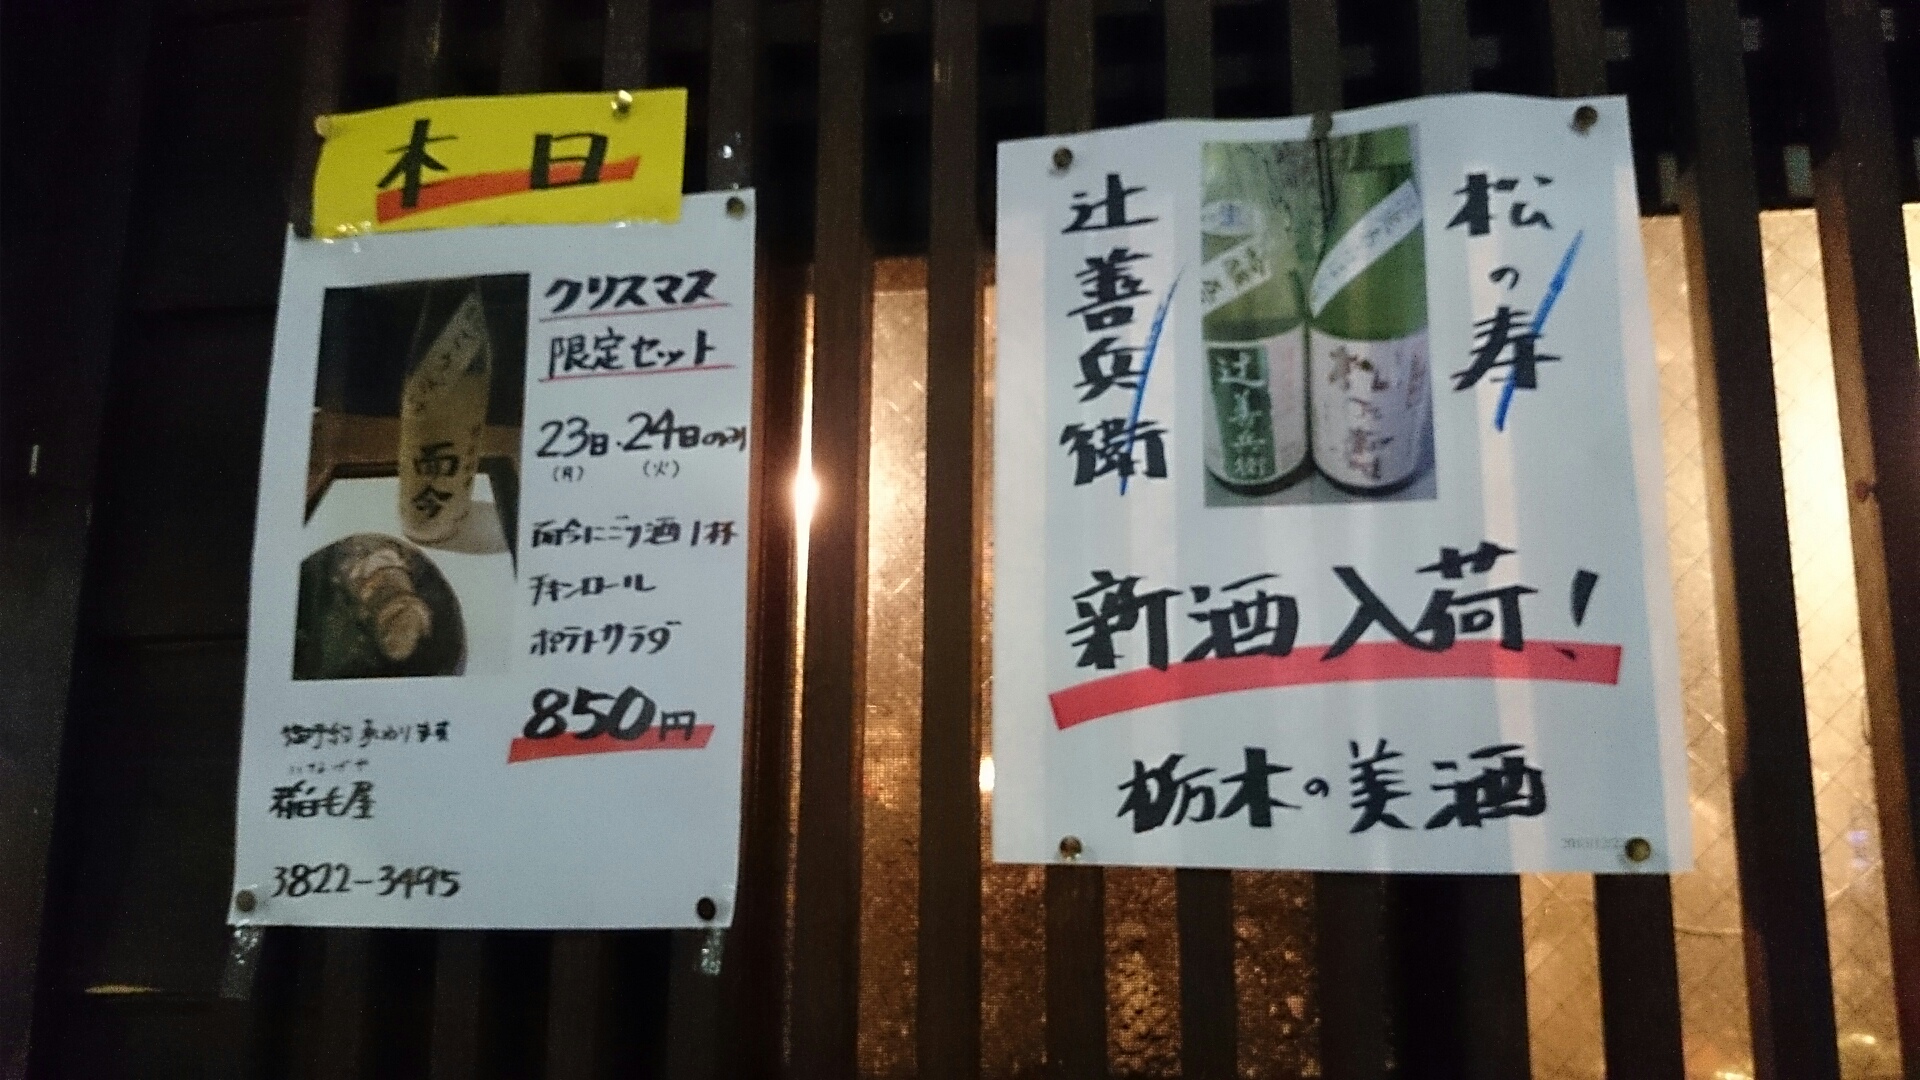 本日
クリスマス
限定セット
23日・24日のみ
(月) (火)
而今にごり酒1杯
チキンロール
ポテトサラダ
850円
御予約承わります
いなげや
稲毛屋
3822-3495
而今
松の寿
辻善兵衛
辻善兵衛
松の寿
新酒入荷!
栃木の美酒